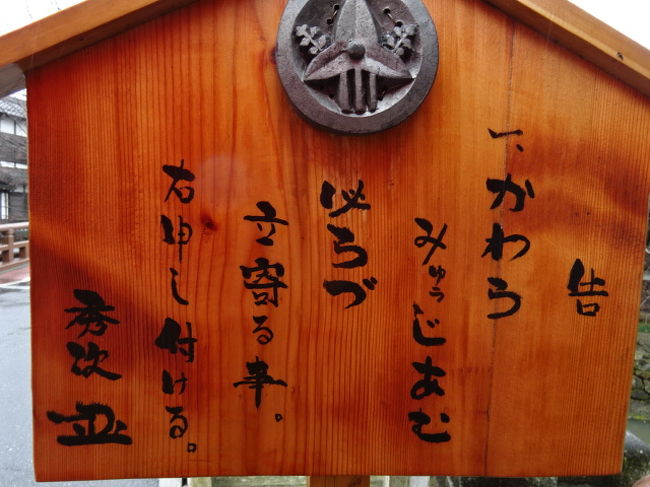 告
一、かわら
みゅうじあむ
必ろづ
立寄る事。
右申し付ける。
秀次